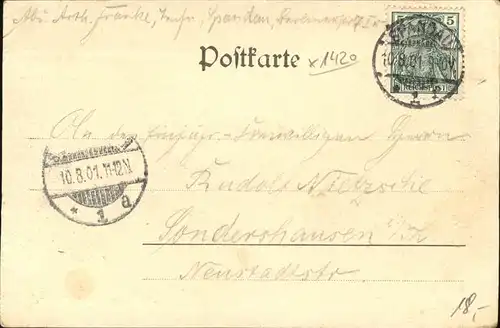 Abs. Arth. Franke, Spandau,
Postkarte
x1420
SPANDAU
10.8.01. 
5 5
10.8.01. 11-12V.
* 1 a
An den Einjähr.-Freiwilligen Herrn
Rudolf Nietzsche
Sondershausen i/Th
Neustadtstr.
18,-